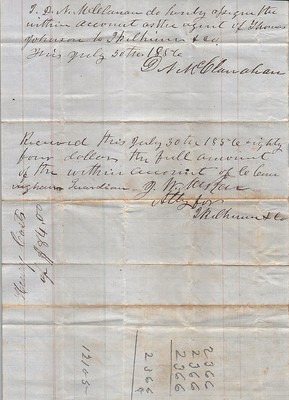 I, D. N. McClanahan do hereby assign the
within account as the agent of Thomas
Johnson to I Kelhum & Co
This July 30th 1856
D N McClanahan
Received this July 30th 1856 eighty
four dollars the full amount
of the within account of C Cun
ningham Guardian
Atty for
I Kelhum & Co
$84.00
12105
2366
2366
2366
2366